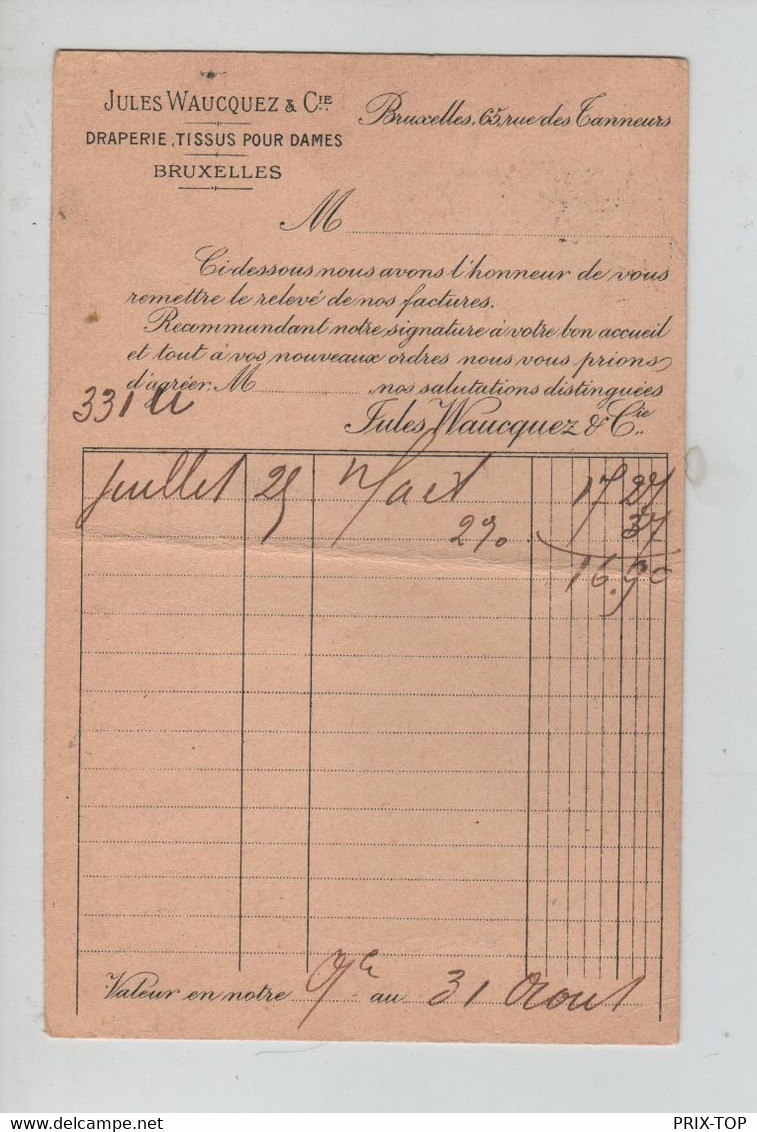 JULES WAUCQUEZ & CIE
DRAPERIE, TISSUS POUR DAMES
BRUXELLES
Bruxelles, 65, rue des Tanneurs
M
Ci-dessous nous avons l'honneur de vous
remettre le relevé de nos factures.
Recommandant notre signature à votre bon accueil
et tout à vos nouveaux ordres nous vous prions
d'agréer M nos salutations distinguées
331
Jules Waucquez & Cie
Juillet 25 17 27
2% 37
16.90
Valeur en notre au 31 Aout
PRIX-TOP